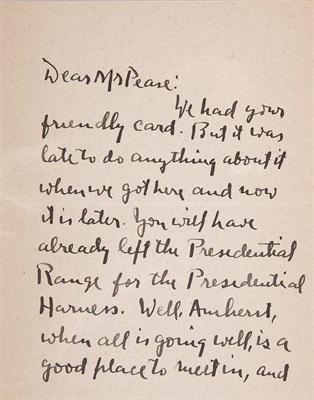 Dear Mr Pease:
We had your
friendly card. But it was
late to do anything about it
when we got here and now
it is later. You will have
already left the Presidential
Range for the Presidential
Harness. Well, Amherst,
when all is going well, is a
good place to meet in, and